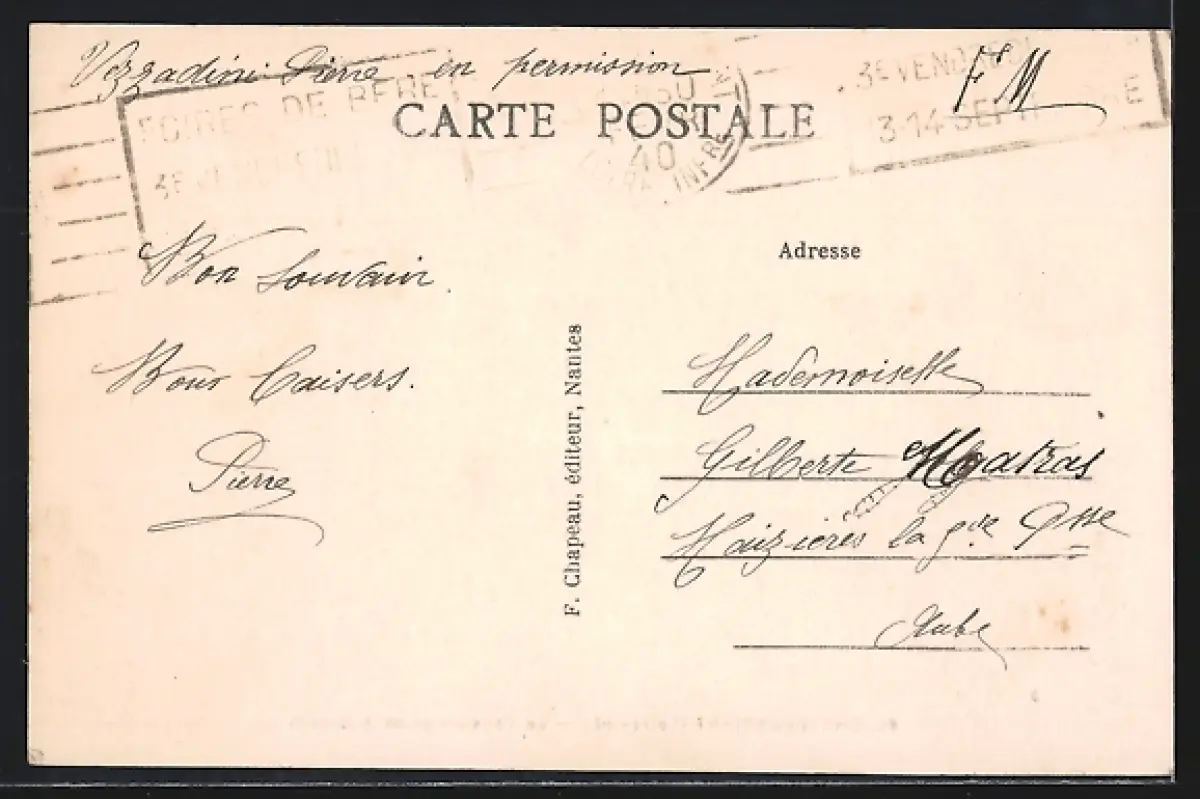 Vezzadini Pierre en permission
F M
FOIRES DE BERE
3E VEND
3-14 SEPT
CARTE POSTALE
40
INFRE
Bon Souvenir.
Bons baisers.
Pierre
F. Chapeau, éditeur, Nantes
Adresse
Mademoiselle
Gilberte
Maizières la gde Psse
Aube